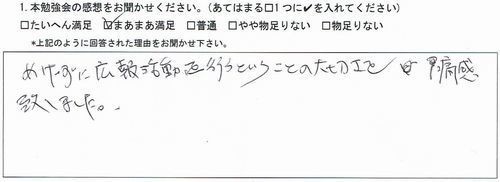 1. 本勉強会の感想をお聞かせください。(あてはまる□1つに✔を入れてください)
□たいへん満足 ☑まあまあ満足 □普通 □やや物足りない □物足りない
*上記のように回答された理由をお聞かせ下さい。
めげずに広報活動を行うということの大切さを 痛感
致しました。